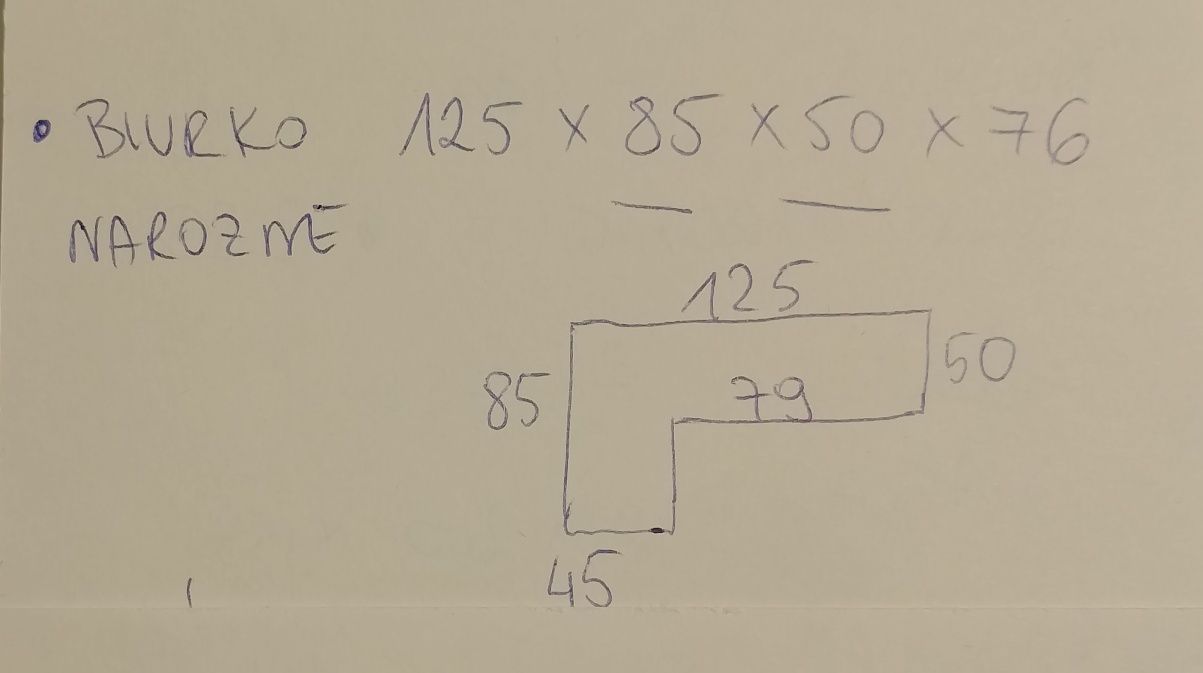 • BIURKO 125 x 85 x 50 x 76
NAROZNE
125
85
50
79
45